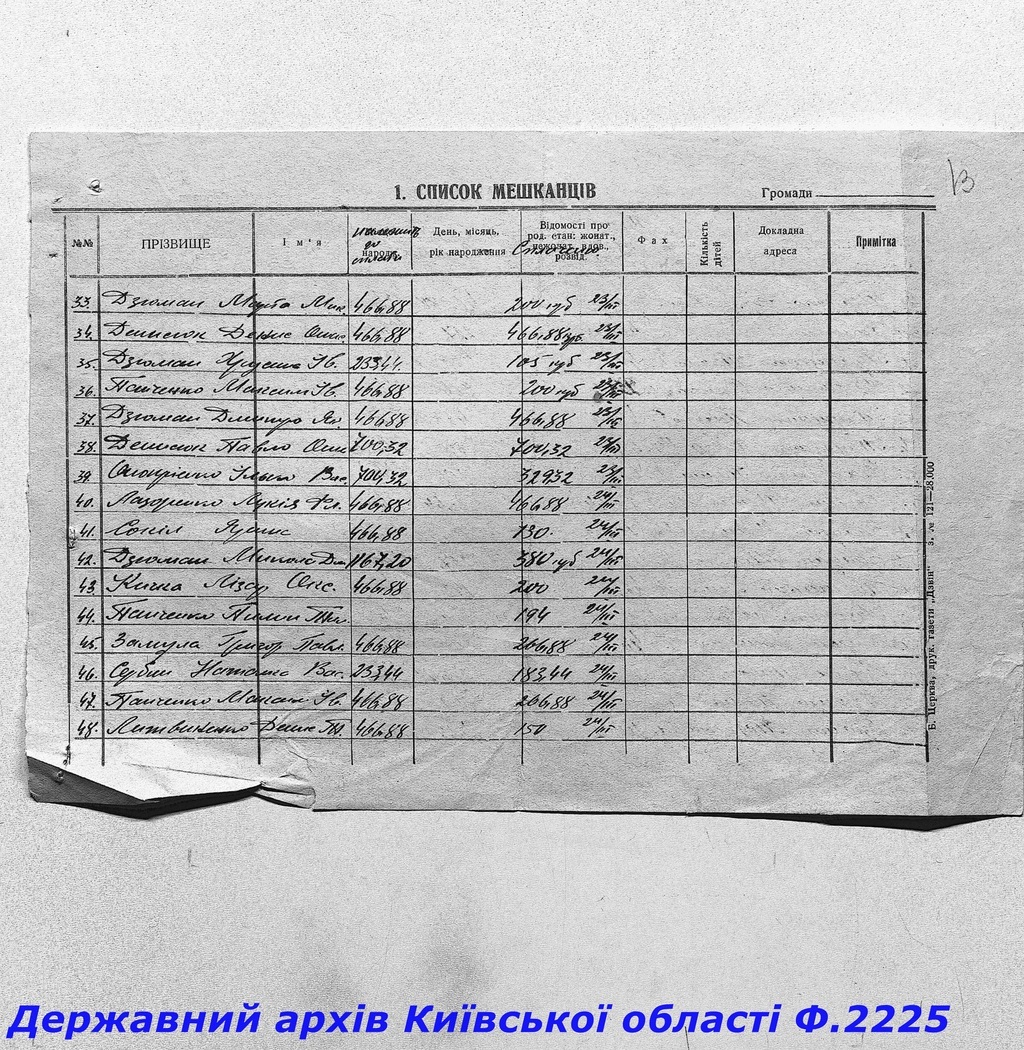 13
1. СПИСОК МЕШКАНЦІВ Громади
№№ ПРІЗВИЩЕ Ім'я належить до сплати народн. День, місяць, рік народження Відомості про род. стан: жонат., нежонат., вдов., розвід. Сплочено Фах Кількість дітей Докладна адреса Примітка
33. Дзюман Марта Мик. 466,88 200 руб 23/III
34. Денисюк Денис Оникс. 466,88 466.88 руб. 23/III
35. Дзюман Ів. 233,44. 105 руб 23/III
36. Панченко Максим Ів. 466,88 200 руб 23/III
37. Дзюман Дмитро Як. 466,88 466,88 23/III
38. Денисюк Павло 700,32 700,32 23/III
39. Онопрієнко Ілько Вас. 700,32 329,32 23/III
40. Лазоренко Лукія Фл. 466,88. 466,88 24/III
41. Сокіл 466,88 130. 24/III
42. Дзюман Микола Дм. 1167,20 380 руб 24/III
43. Кичка Лізар Окс. 466,88 200 24/III
44. Панченко Пилип 194 24/III
45. Замула Григор Павл. 466,88 266,88 24/III
46. Сербин Наталка Вас. 233,44 183,44 24/III
47. Панченко Максим Ів. 466,88 266,88 24/III
48. Литвиненко Денис 466,88 150 24/III
Б. Церква, друк. газети „Дзвін" з. № 121—28.000
Державний архів Київської області Ф.2225